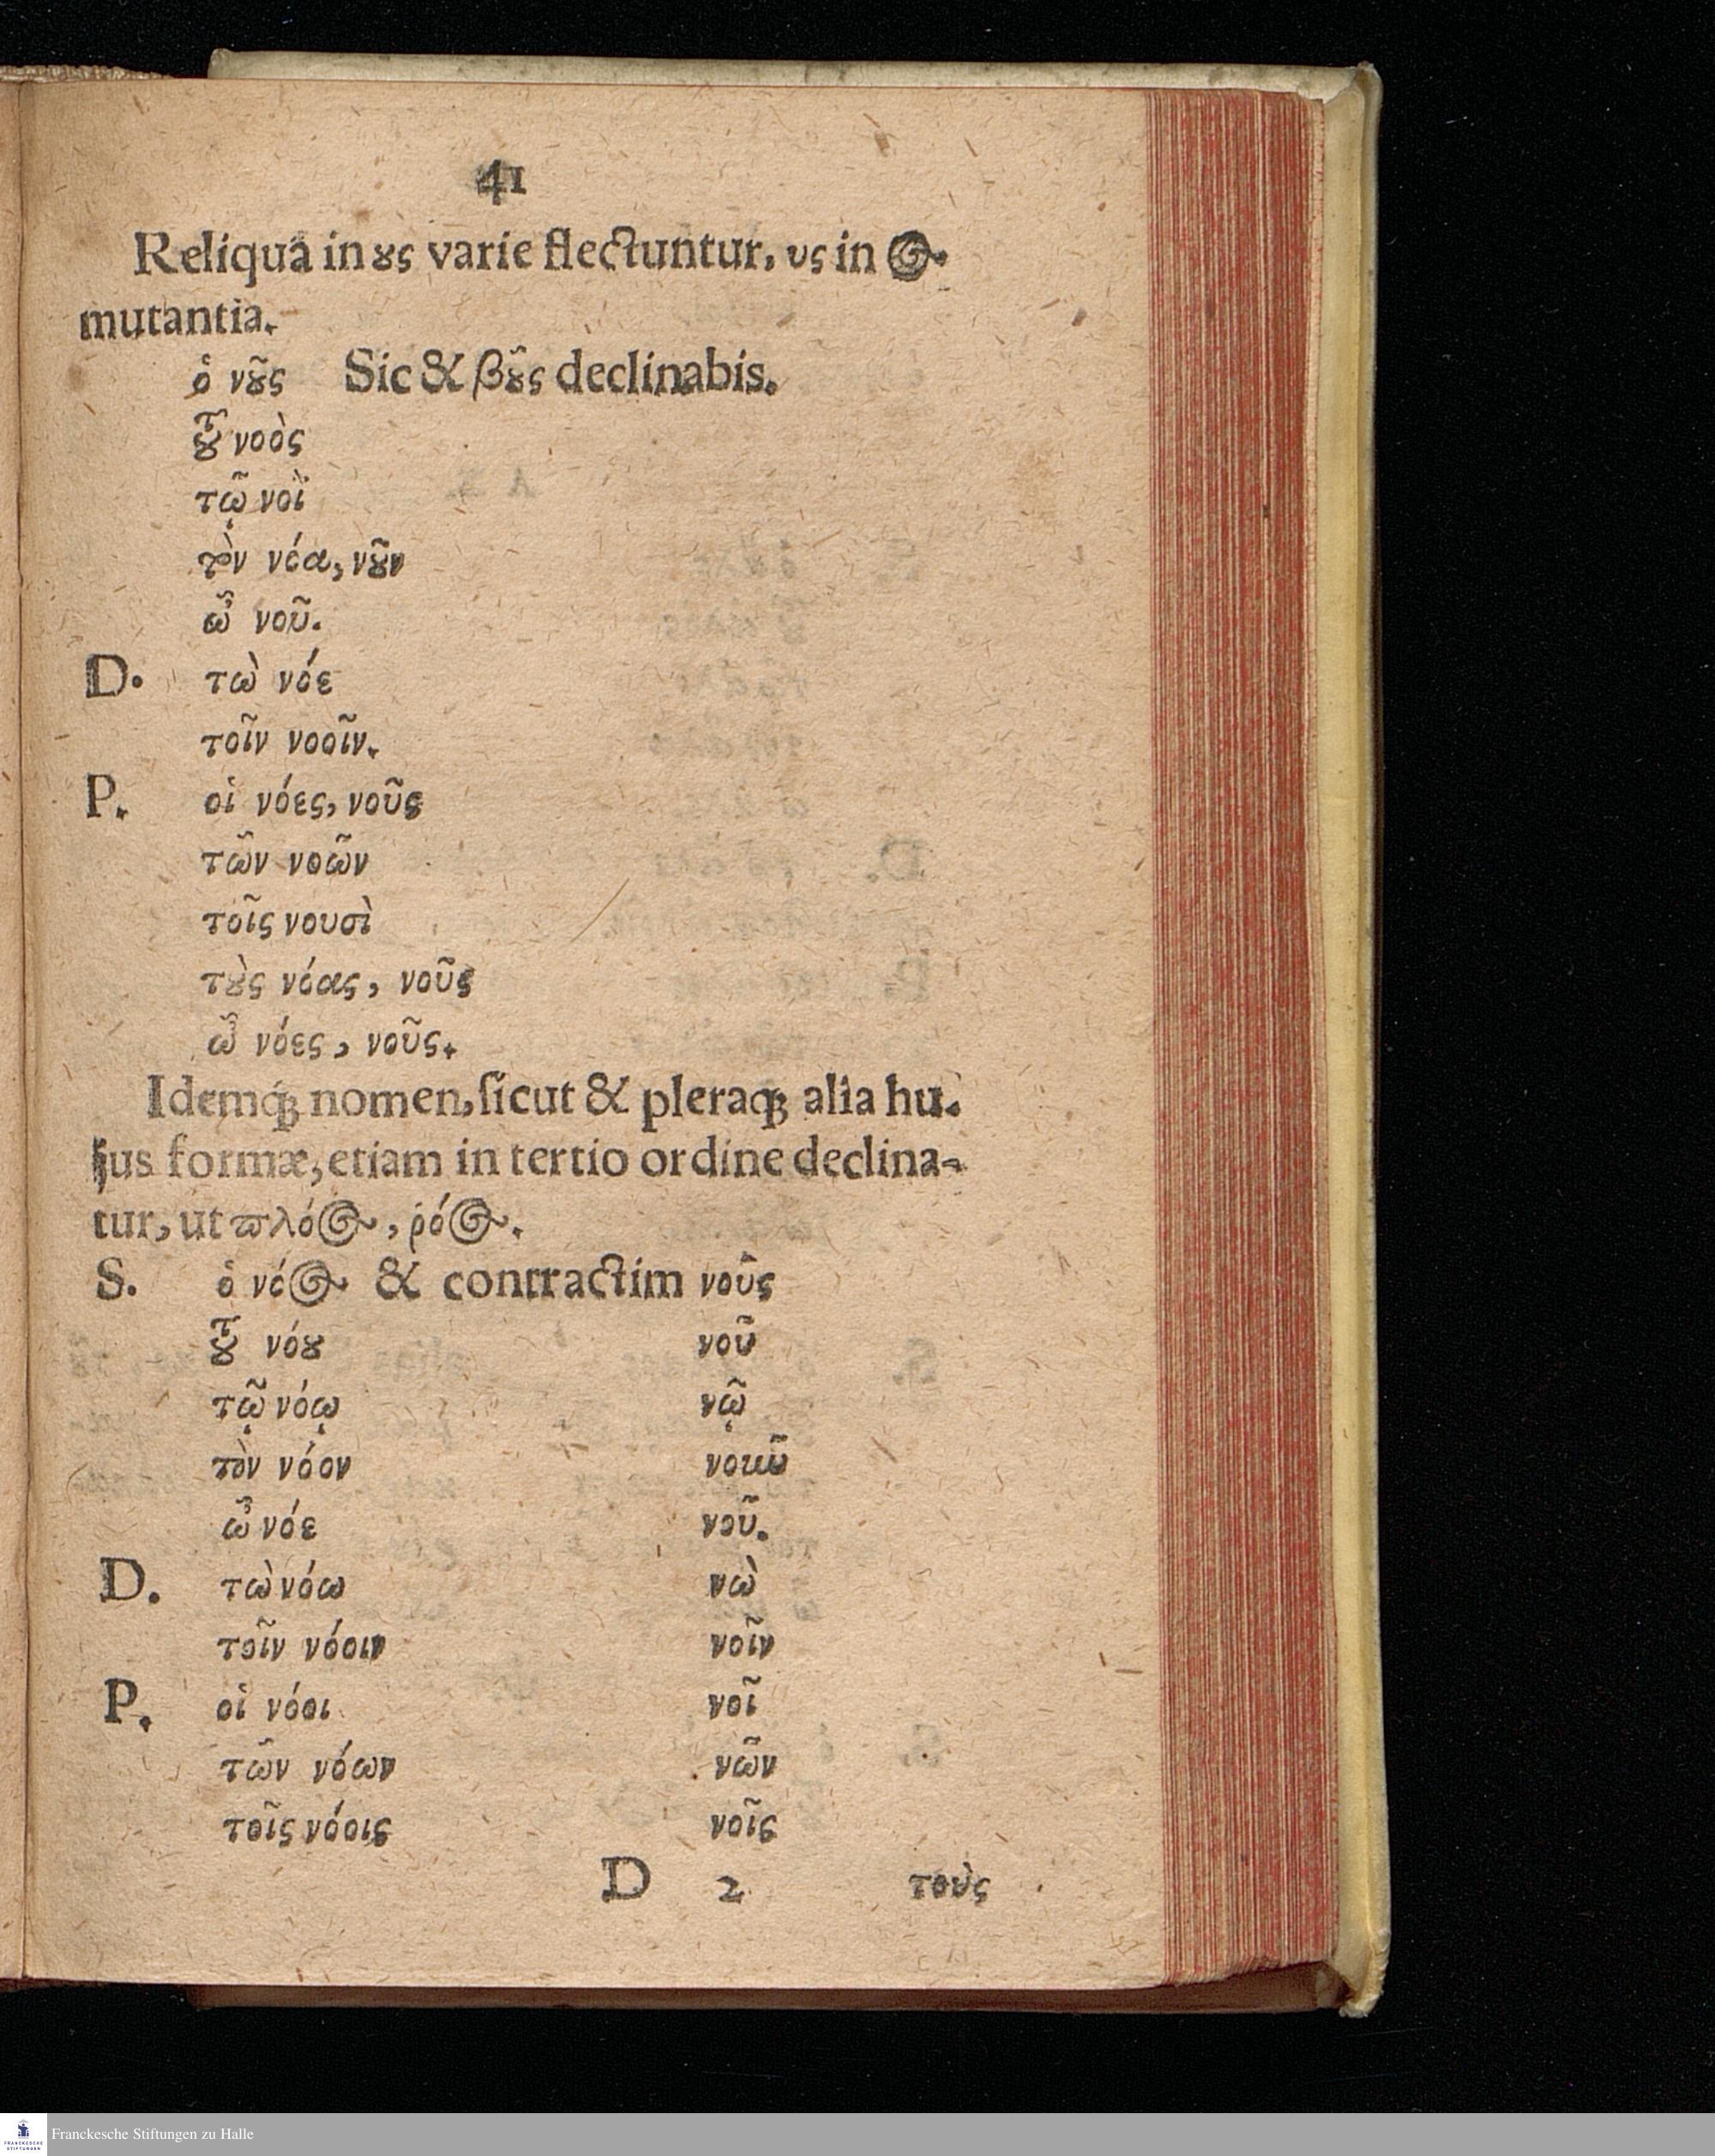 41
Reliquā in ȣς varie flectuntur, υς in ος
mutantia.
ὁ νȣ͂ς Sic & βȣ͂ς declinabis.
τȣ͂ νοὸς
τῷ νοῒ
τὸν νόα, νȣ͂ν
ὦ νοῦ.
D. τὼ νόε
τοῖν νοοῖν.
P. οἱ νόες, νοῦς
τῶν νοῶν
τοῖς νουσὶ
τȣ̀ς νόας, νοῦς
ὦ νόες, νοῦς.
Idemq́ꝫ nomen, ſicut & pleraqꝫ alia hu.
jus formæ, etiam in tertio ordine declina-
tur, ut ϖλόος, ῥόος.
S. ὁ νόος & contractim νοῦς
τȣ͂ νόȣ νοῦ
τῷ νόῳ νῷ
τὸν νόον
ὦ νόε νοῦ.
D. τὼ νόω νὼ
τοῖν νόοιν νοῖν
P. οἱ νόοι νοῖ
τῶν νόων νῶν
τοῖς νόοις νοῖς
D 2 τοὺς
FRANCKESCHE STIFTUNGEN
Franckesche Stiftungen zu Halle